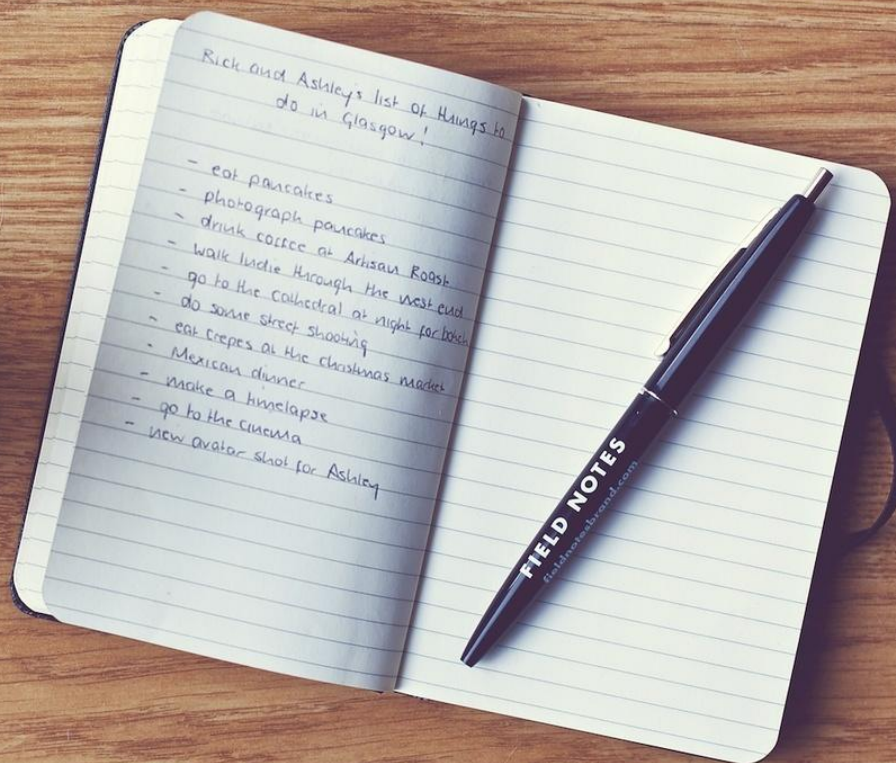 Rick and Ashley's list of things to
do in Glasgow!
- eat pancakes
- photograph pancakes
- drink coffee at Artisan Roast
- walk Indie through the west end
- go to the cathedral at night for
- do some street shooting
- eat crepes at the christmas market
- Mexican dinner
- make a timelapse
- go to the cinema
- new avatar shot for Ashley
FIELD NOTES
fieldnotesbrand.com